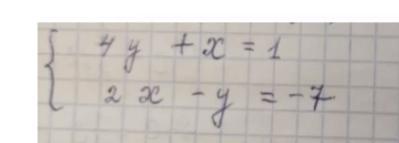 4y + x = 1
2x - y = -7